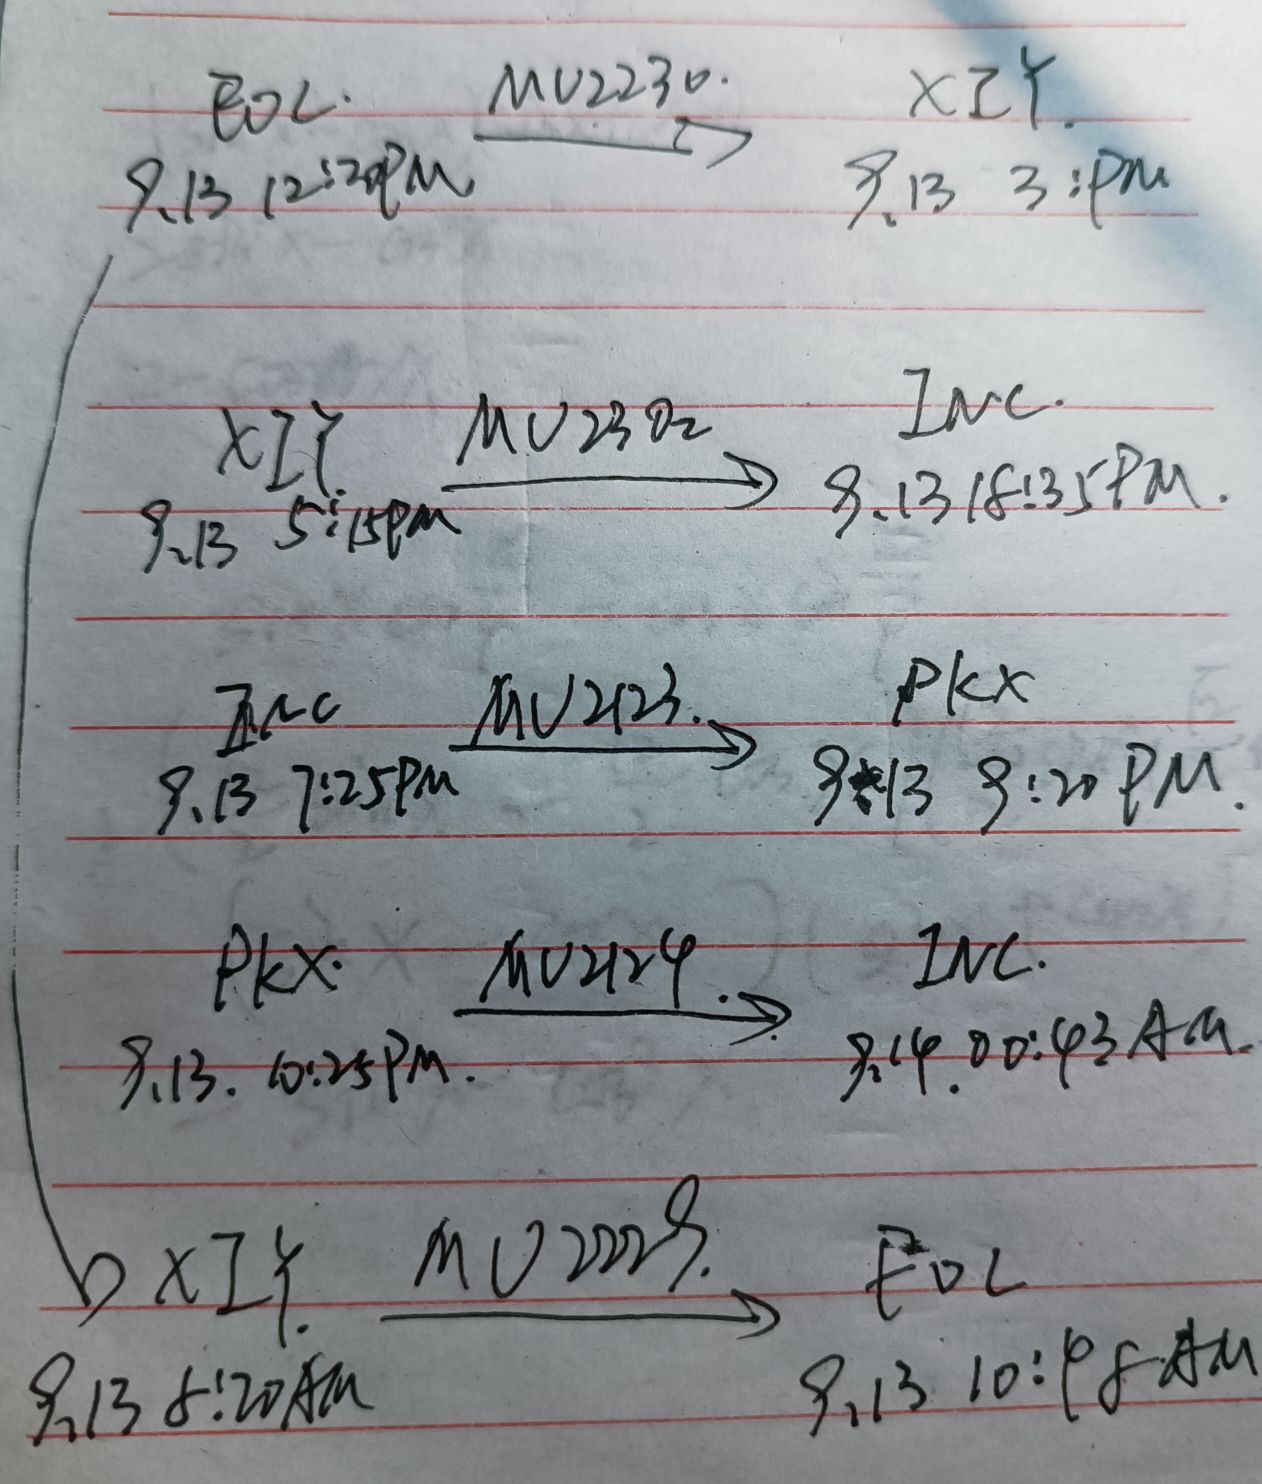 EOL. MU2230. XIY.
9.13 12:20PM 9.13 3:PM
XIY. MU2302 INC.
9.13 5:15PM 9.13 18:35PM.
INC MU2123. PKX
9.13 7:25PM 9.13 9:20 PM.
PKX. MU2124. INC.
9.13. 10:25PM. 9.14. 00:43 AM.
XIY. MU2229. EOL
9.13 8:20AM 9.13 10:48 AM